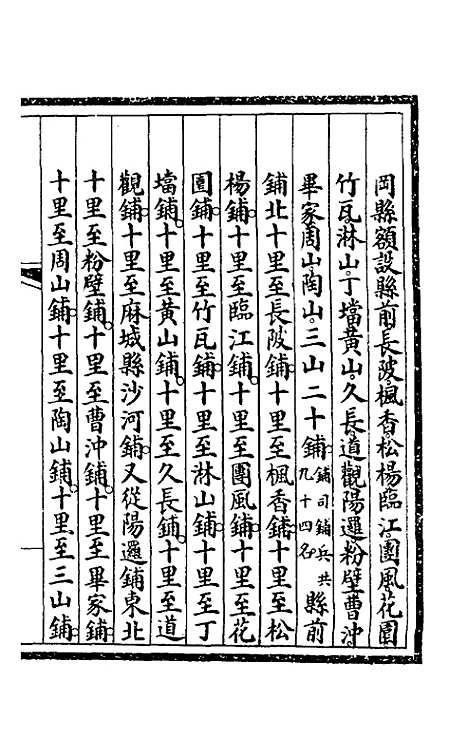 岡縣額設縣前長陂楓香松楊臨江團風花園
竹瓦淋山丁壋黃山久長道觀陽邏粉壁曹沖
畢家周山陶山三山二十鋪鋪司鋪兵共九十四名縣前
鋪北十里至長陂鋪十里至楓香鋪十里至松
楊鋪十里至臨江鋪十里至團風鋪十里至花
園鋪十里至竹瓦鋪十里至淋山鋪十里至丁
壋鋪十里至黃山鋪十里至久長鋪十里至道
觀鋪十里至麻城縣沙河鋪又從陽邏鋪東北
十里至粉壁鋪十里至曹沖鋪十里至畢家鋪
十里至周山鋪十里至陶山鋪十里至三山鋪